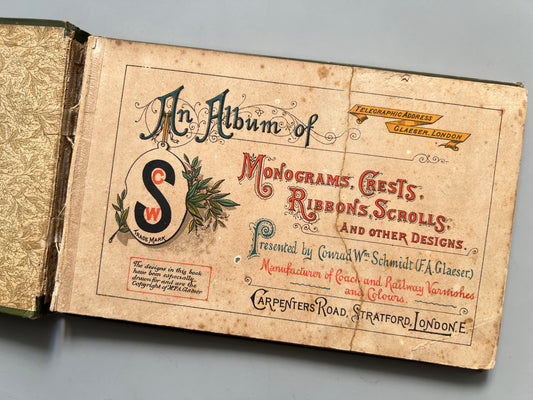 An Album of
TELEGRAPHIC ADDRESS
GLAESER, LONDON
MONOGRAMS, CRESTS,
RIBBONS, SCROLLS,
AND OTHER DESIGNS.
C
S
W
TRADE MARK
Presented by Conrad Wm Schmidt (F.A. Glaeser)
Manufacturer of Coach and Railway Varnishes
and Colours.
CARPENTERS ROAD, STRATFORD, LONDON. E.
The designs in this book
have been especially
drawn for and are the
Copyright of Mr F.A. Glaeser